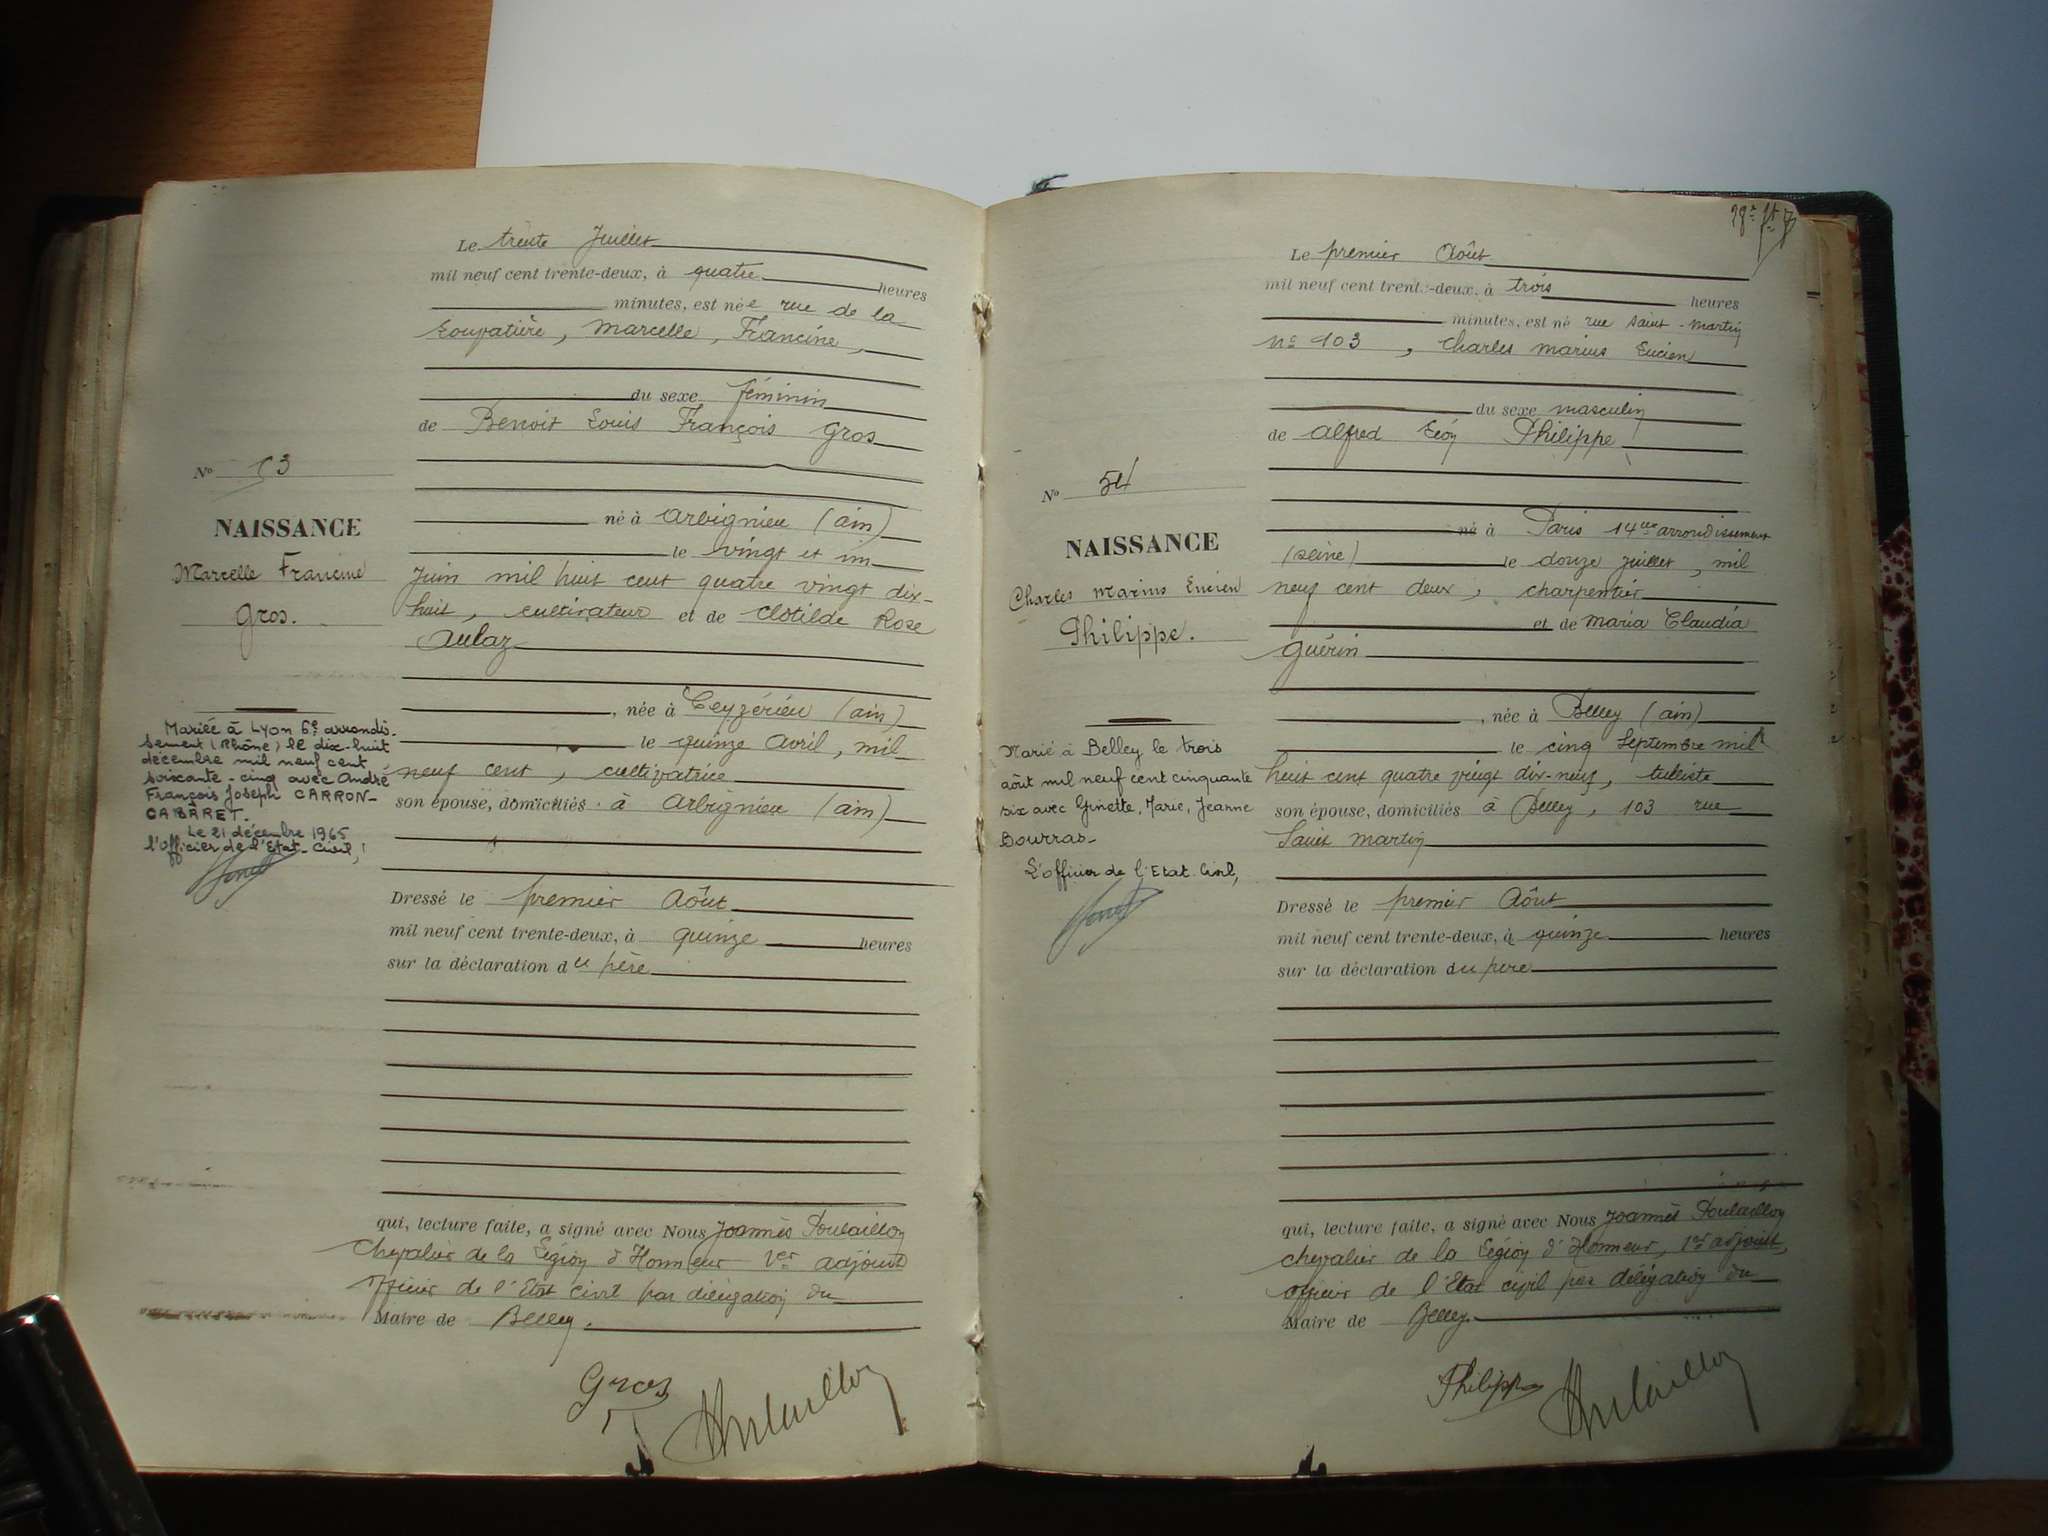 Le trente Juillet
mil neuf cent trente-deux, à quatre heures
minutes, est née rue de la
Loupatière, Marcelle, Francine,
du sexe féminin
de Benoit Louis François Gros
né à Arbignieu (ain)
le vingt et un
Juin mil huit cent quatre vingt dix-
huit, cultivateur et de Clotilde Rose
Aulaz
, née à Ceyzérieu (ain)
le quinze Avril, mil
neuf cent, cultivatrice
son épouse, domiciliés à Arbignieu (ain)
Dressé le premier Août
mil neuf cent trente-deux, à quinze heures
sur la déclaration du père
qui, lecture faite, a signé avec Nous Joannès Poulaillon
Chevalier de la Légion d'Honneur 1er adjoint
officier de l'Etat civil par délégation du
Maire de Belley.
Gros
Poulaillon
No 53
NAISSANCE
Marcelle Francine
Gros.
Mariée à Lyon 6e arrondis-
sement (Rhône) le dix-huit
décembre mil neuf cent
soixante-cinq avec André
François Joseph CARRON-
CABARET.
Le 21 décembre 1965
l'officier de l'Etat-Civil,
Le premier Août
mil neuf cent trente-deux, à trois heures
minutes, est né rue Saint-Martin
no 103, Charles Marius Lucien
du sexe masculin
de Alfred Léon Philippe
né à Paris 14me arrondissement
(Seine) le douze juillet, mil
neuf cent deux, charpentier
et de Maria Claudia
Guérin
, née à Belley (ain)
le cinq Septembre mil
huit cent quatre vingt dix-neuf, tulliste
son épouse, domiciliés à Belley, 103 rue
Saint Martin
Dressé le premier Août
mil neuf cent trente-deux, à quinze heures
sur la déclaration du père
qui, lecture faite, a signé avec Nous Joannès Poulaillon
chevalier de la Légion d'Honneur, 1er adjoint,
officier de l'Etat civil par délégation du
Maire de Belley.
Philippe
Poulaillon
No 54
NAISSANCE
Charles Marius Lucien
Philippe.
Marié à Belley le trois
août mil neuf cent cinquante
six avec Ginette, Marie, Jeanne
Bourras-
L'officier de l'Etat Civil,